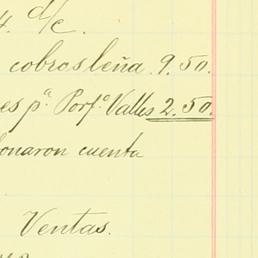 4. d/c.
cobros leña. 9.50.
es pª Porfº Valles 2.50.
onaron cuenta
Ventas.